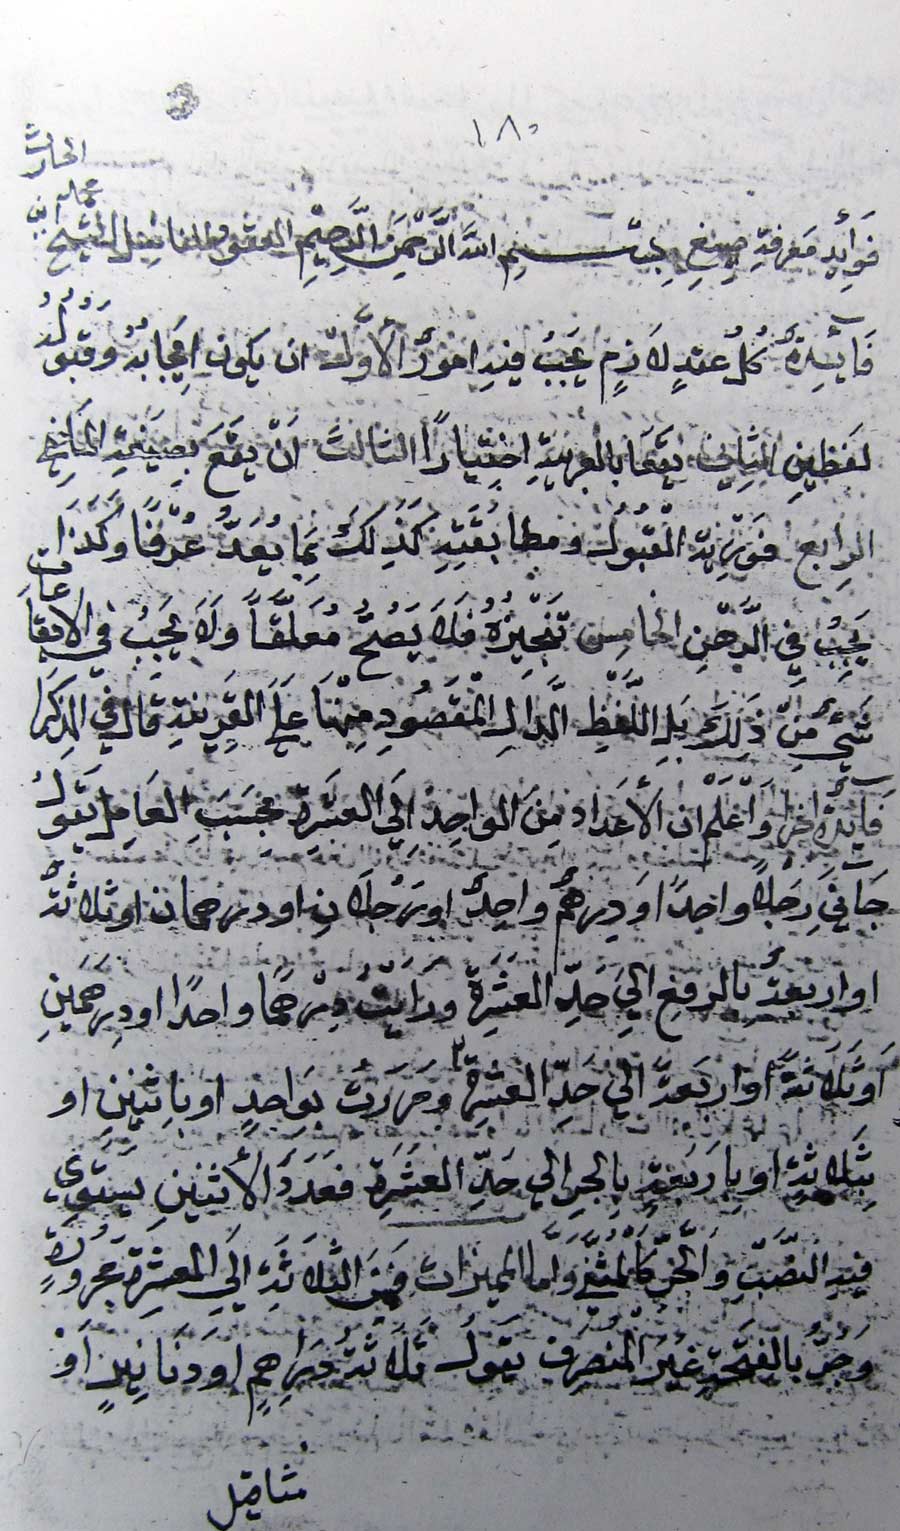 ١٨٠
فَوَائِدِ مَعْرِفَةِ صِيَغِ بِسْمِ اللهِ الرَّحْمٰنِ الرَّحِيْمِ العقود للفاضل الشيخ
محمد ابن
الحارث
فَائِدَةٌ كُلُّ عقدٍ لَازِمٍ يَجِبُ فيهِ امورٌ الْاَوَّلُ ان يكون اِيْجَابُهُ وقبولُهُ
لفظينِ الثاني يقعا بالعربيةِ اختيارًا الثالث اَنْ يقعَ بصيغةِ المَاضي
الرابع فوريّة القبول ومطابقتهِ كَذٰلِكَ بِمَا يُعَدُّ عُرْفًا وكَذَا
يَجِبُ فِي الرَّهْنِ الخامس تَنْجِيْزُهُ فلا يَصُحُّ مُعَلَّقًا وَلَا يَجِبُ فِي الايقاعات
شَيْءٌ مِنْ ذٰلِكَ بلِ اللَّفْظِ الدَّالِ المَقصُودِ مِنْهَا عَلَى القَرِينةِ قال في الذكرا
فَائِدَة اخرا وَاعْلَمْ ان الأعداد مِنَ الواحِدِ اِلَى العشَرة بحَسَبِ العَامِل يَقولُ
جَائَني رَجُلًا واحِدًا اَو دِرهمٌ واحِدٌ او رَجُلَانِ او درهمان او ثلاثةٌ
او اربعةٌ بالرفعِ اِلَى حَدِّ العَشَرَة ورايتُ دِرْهَمًا واحدًا او دِرهَمَينِ
اَو ثَلَاثةً او اربَعةً الى حَدِّ العشرة ومَرَرْتُ بِوَاحِدٍ او باِثنينِ او
بثَلاثةٍ او بِاَربَعةٍ بِالجرِ الى حَدِّ العَشَرَة فعَدَدَ الأثنينِ يَسْتَوِي
فيهِ النَّصْبِ وَالْجَرّ كَالمُثَنَّى وَاَمَّا المميزات فمِنَ الثَّلَاثَةِ اِلَى العشرة مَجرُورَةٍ
وَجُرَّ بالفتحةِ غيرَ المُنْصَرِف يَقولُ ثَلَاثة دَرَاهِمٍ او دَنَانِيرٍ اَوْ
مثاقيل